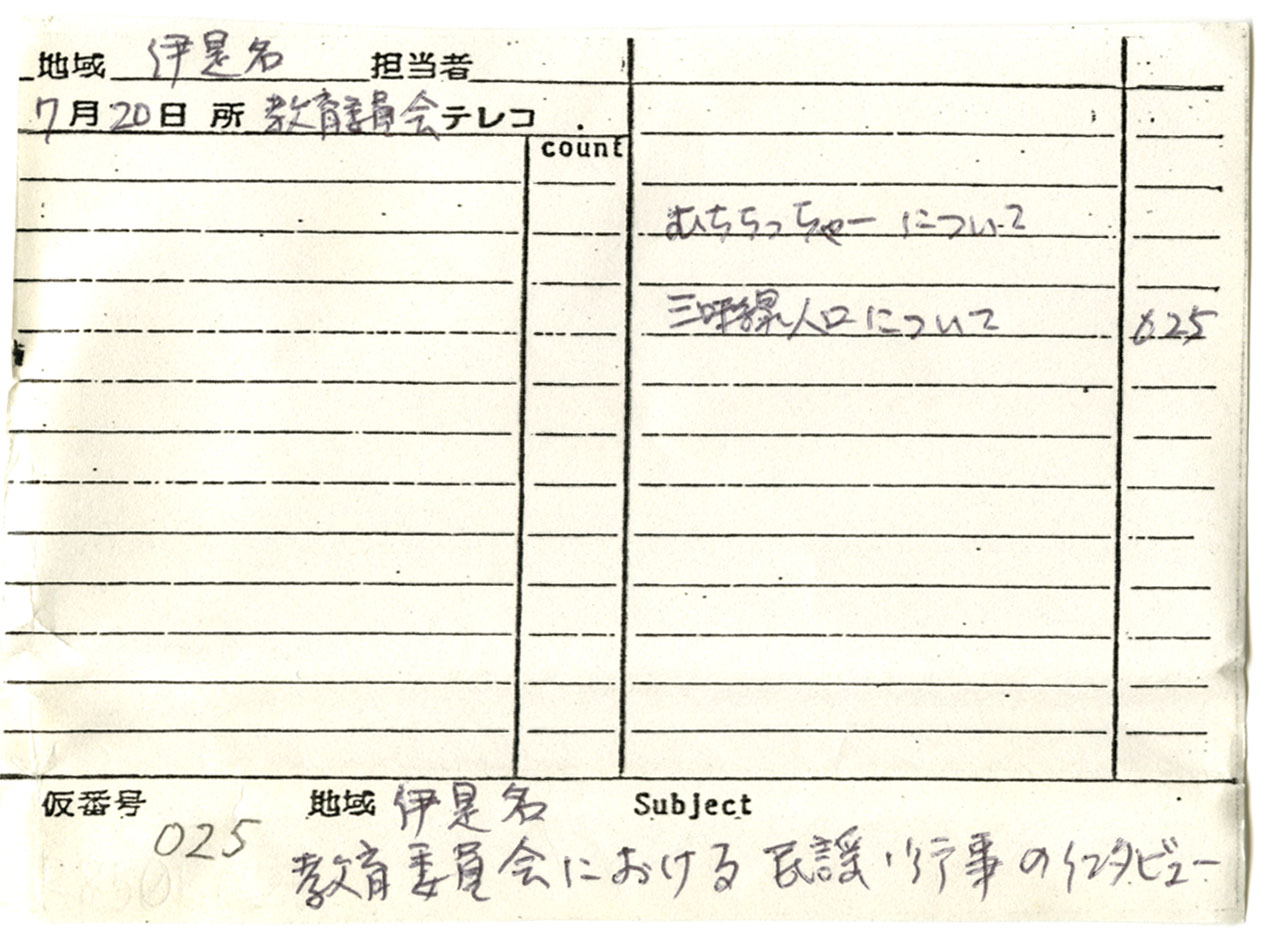 地域 伊是名 担当者
7月20日 所 教育委員会 テレコ
count
むちちっちゃー について
三味線人口について 625
仮番号 025 地域 伊是名 Subject
教育委員会における 民謡・行事のインタビュー